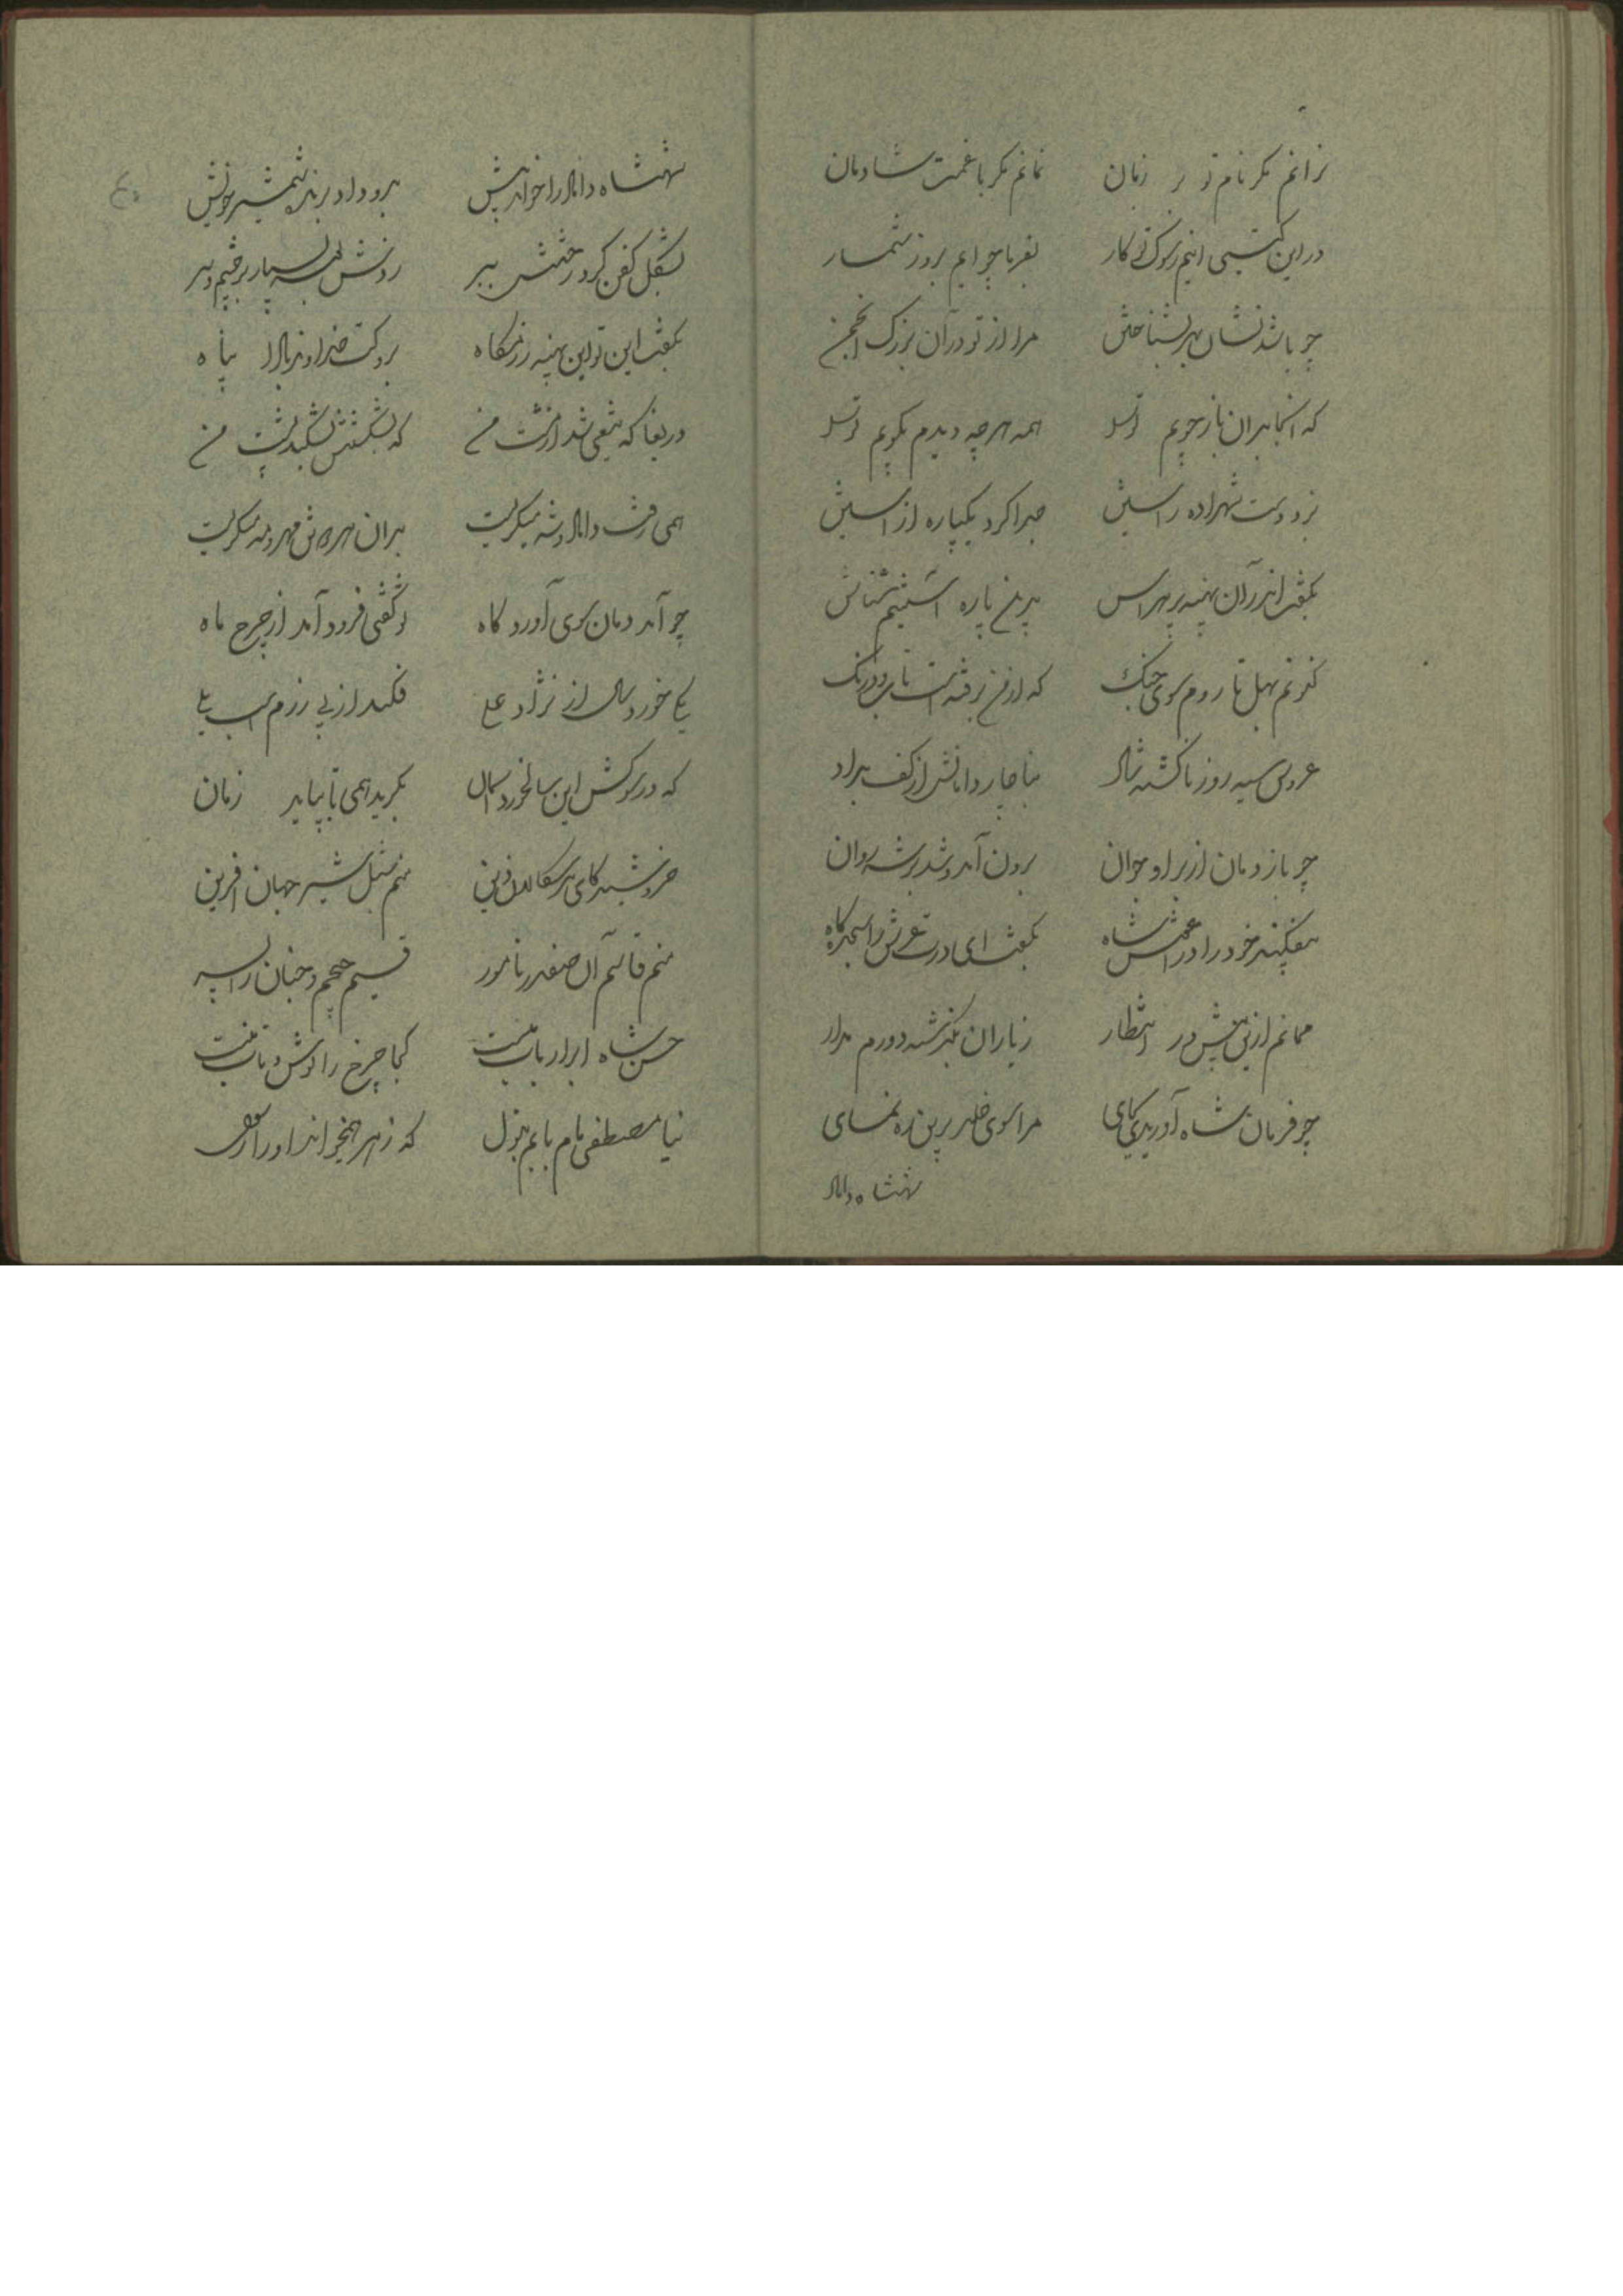 نرانم مگر نام تو بر زبان نمانم مگر با غمت شادمان
در این گیتی اینم سوک تو کار بفرما چو ایم بروز شمار
چو باشد نشان بهر بشناختن مرا از تو در آن بزرگ انجمن
که آنجا بدان باز جویم ترا همه هرچه دیدم بگویم ترا
بزد دست شهزاده راستین جدا کرد یکپاره از آستین
بگفت اندر آن پهنه پر هراس بدین پاره آستینم شناس
کنونم بهل تا روم سوی جنگ که از من برفته است تاب و درنگ
عروس سیه روز ناگشته شاد بناچار دامانش از کف بداد
چو باز دمان از بر او جوان برون آمد و شد بر شه روان
بیفکند خود را در شاه بگفت ای درت عرش را سجده گاه
ممانم ازین بیش در انتظار ز یاران بگذشته دورم مدار
چو فرمان شاه آوریدی بجای مرا سوی خلد برین ره نمای
شهنشاه داماد
شهنشاه داماد را خواند پیش برو داد برنده شمشیر خویش
بشکل کفن کرد رختش ببر روانش بسپار بر چشم و سر
بگفت این تو این پهنه رزمگاه بروکت خداوند بادا پناه
دریغا که تیغی شد از مشت من که بشکستنش بشکند پشت من
همی رفت داماد و شه میگریست بدان مهر و مه میگریست
چو آمد دمان سوی آوردگاه تو گفتی فرود آمد از چرخ ماه
یکی خورد سال از نژاد علی فکند از پی رزم اسب یلی
که در کوشش این سالخورد آسمان بگرید همی تا بپاید زمان
خروشید کای سگالان دین منم شبل شیر جهان آفرین
منم قاسم آن صفدر نامور قسیم جحیم و جنان را پسر
حسن شاه ابرار باب منست کجا چرخ را توش و تاب منست
نیا مصطفی مام بابم بتول که زهرا همیخواند او را رسول